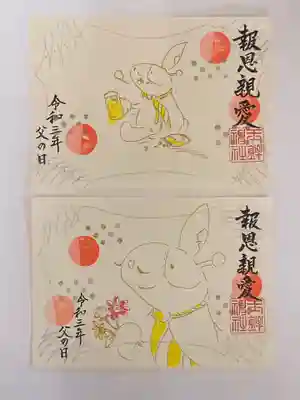 報恩親愛
令和三年
父の日
報恩親愛
令和三年
父の日